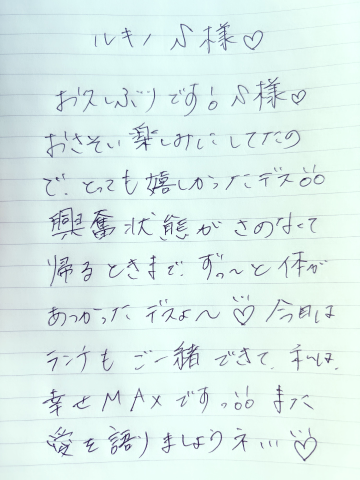 ルキノS様♡
お久しぶりです! S様♡
おさそい楽しみにしてたの
で、とっても嬉しかったデス
興奮状態がさめなくて
帰るときまで、ずっ〜と体が
あつかったデスよ〜 ♡ 今日は
ランチもご一緒できて、私は、
幸せMAXですっ また
愛を語りましょうネ… ♡